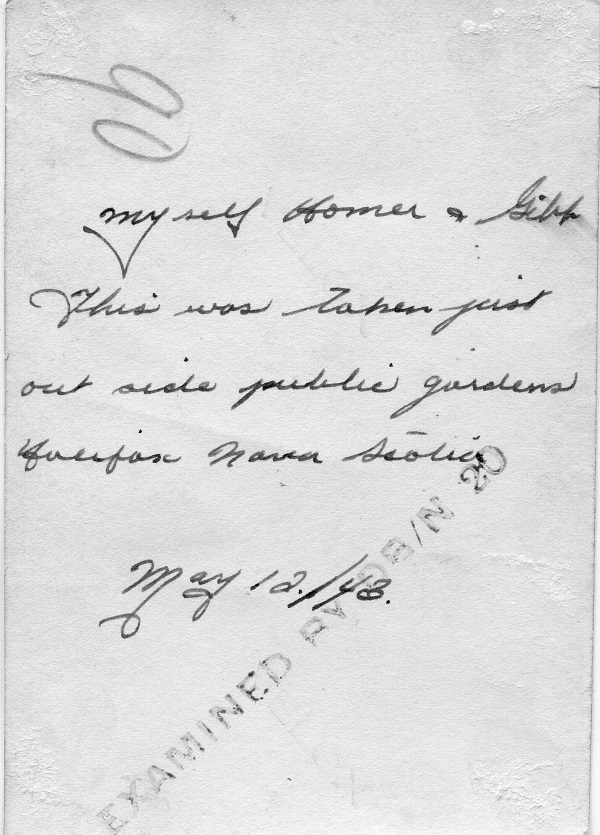 90
myself Homer & Gibb
This was taken just
out side public gardens
Halifax Nova Scotia
May 12./43.
EXAMINED BY DB/N 20